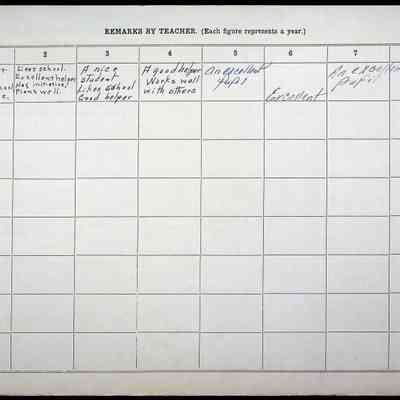 REMARKS BY TEACHER. (Each figure represents a year.)
2 3 4 5 6 7
Likes school.
Excellent helper
Has initiative,
Plans well.
A nice
student
Likes school
Good helper
A good helper
Works well
with others
An excellent
pupil
Excellent
An excellent
pupil